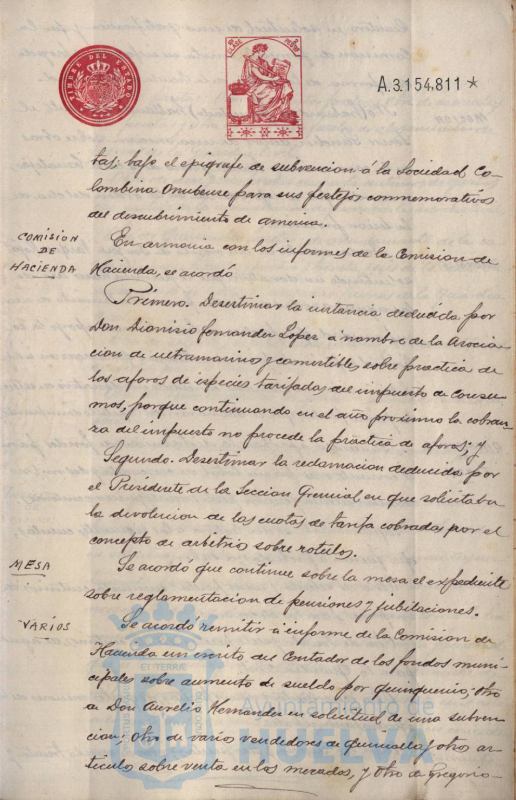 TIMBRE DEL ESTADO
A.3.154.811 *
tas; bajo el epigrafe de subvencion á la Sociedad Co-
lombina Onubense para sus festejos conmemorativos
del descubrimiento de america.
COMISION
DE
HACIENDA
En armonia con los informes de la Comision de
Hacienda, se acordó
Primero. Desestimar la instancia deducida por
Don Dionisio Fernandez Lopez á nombre de la Asocia-
cion de ultramarinos y comestibles sobre practica de
los aforos de especies tarifadas del impuesto de Consu-
mos, porque continuando en el año proximo la cobran-
za del impuesto no procede la practica de aforos; y
Segundo. Desestimar la reclamacion deducida por
el Presidente de la Seccion Gremial en que solicitaba
la devolucion de las cuotas de tarifa cobradas por el
concepto de arbitrio sobre rotulos.
MESA
Se acordó que continue sobre la mesa el expediente
sobre reglamentacion de pensiones y jubilaciones.
VARIOS
Se acordó remitir á informe de la Comision de
Hacienda un escrito del Contador de los fondos muni-
cipales sobre aumento de sueldo por quinquenio; otro
de Don Aurelio Hernandez en solicitud de una subven-
cion; otro de varios vendedores de quincalla y otro ar-
ticulos sobre venta en los mercados, y otro de Gregorio
Ayuntamiento de
HUELVA